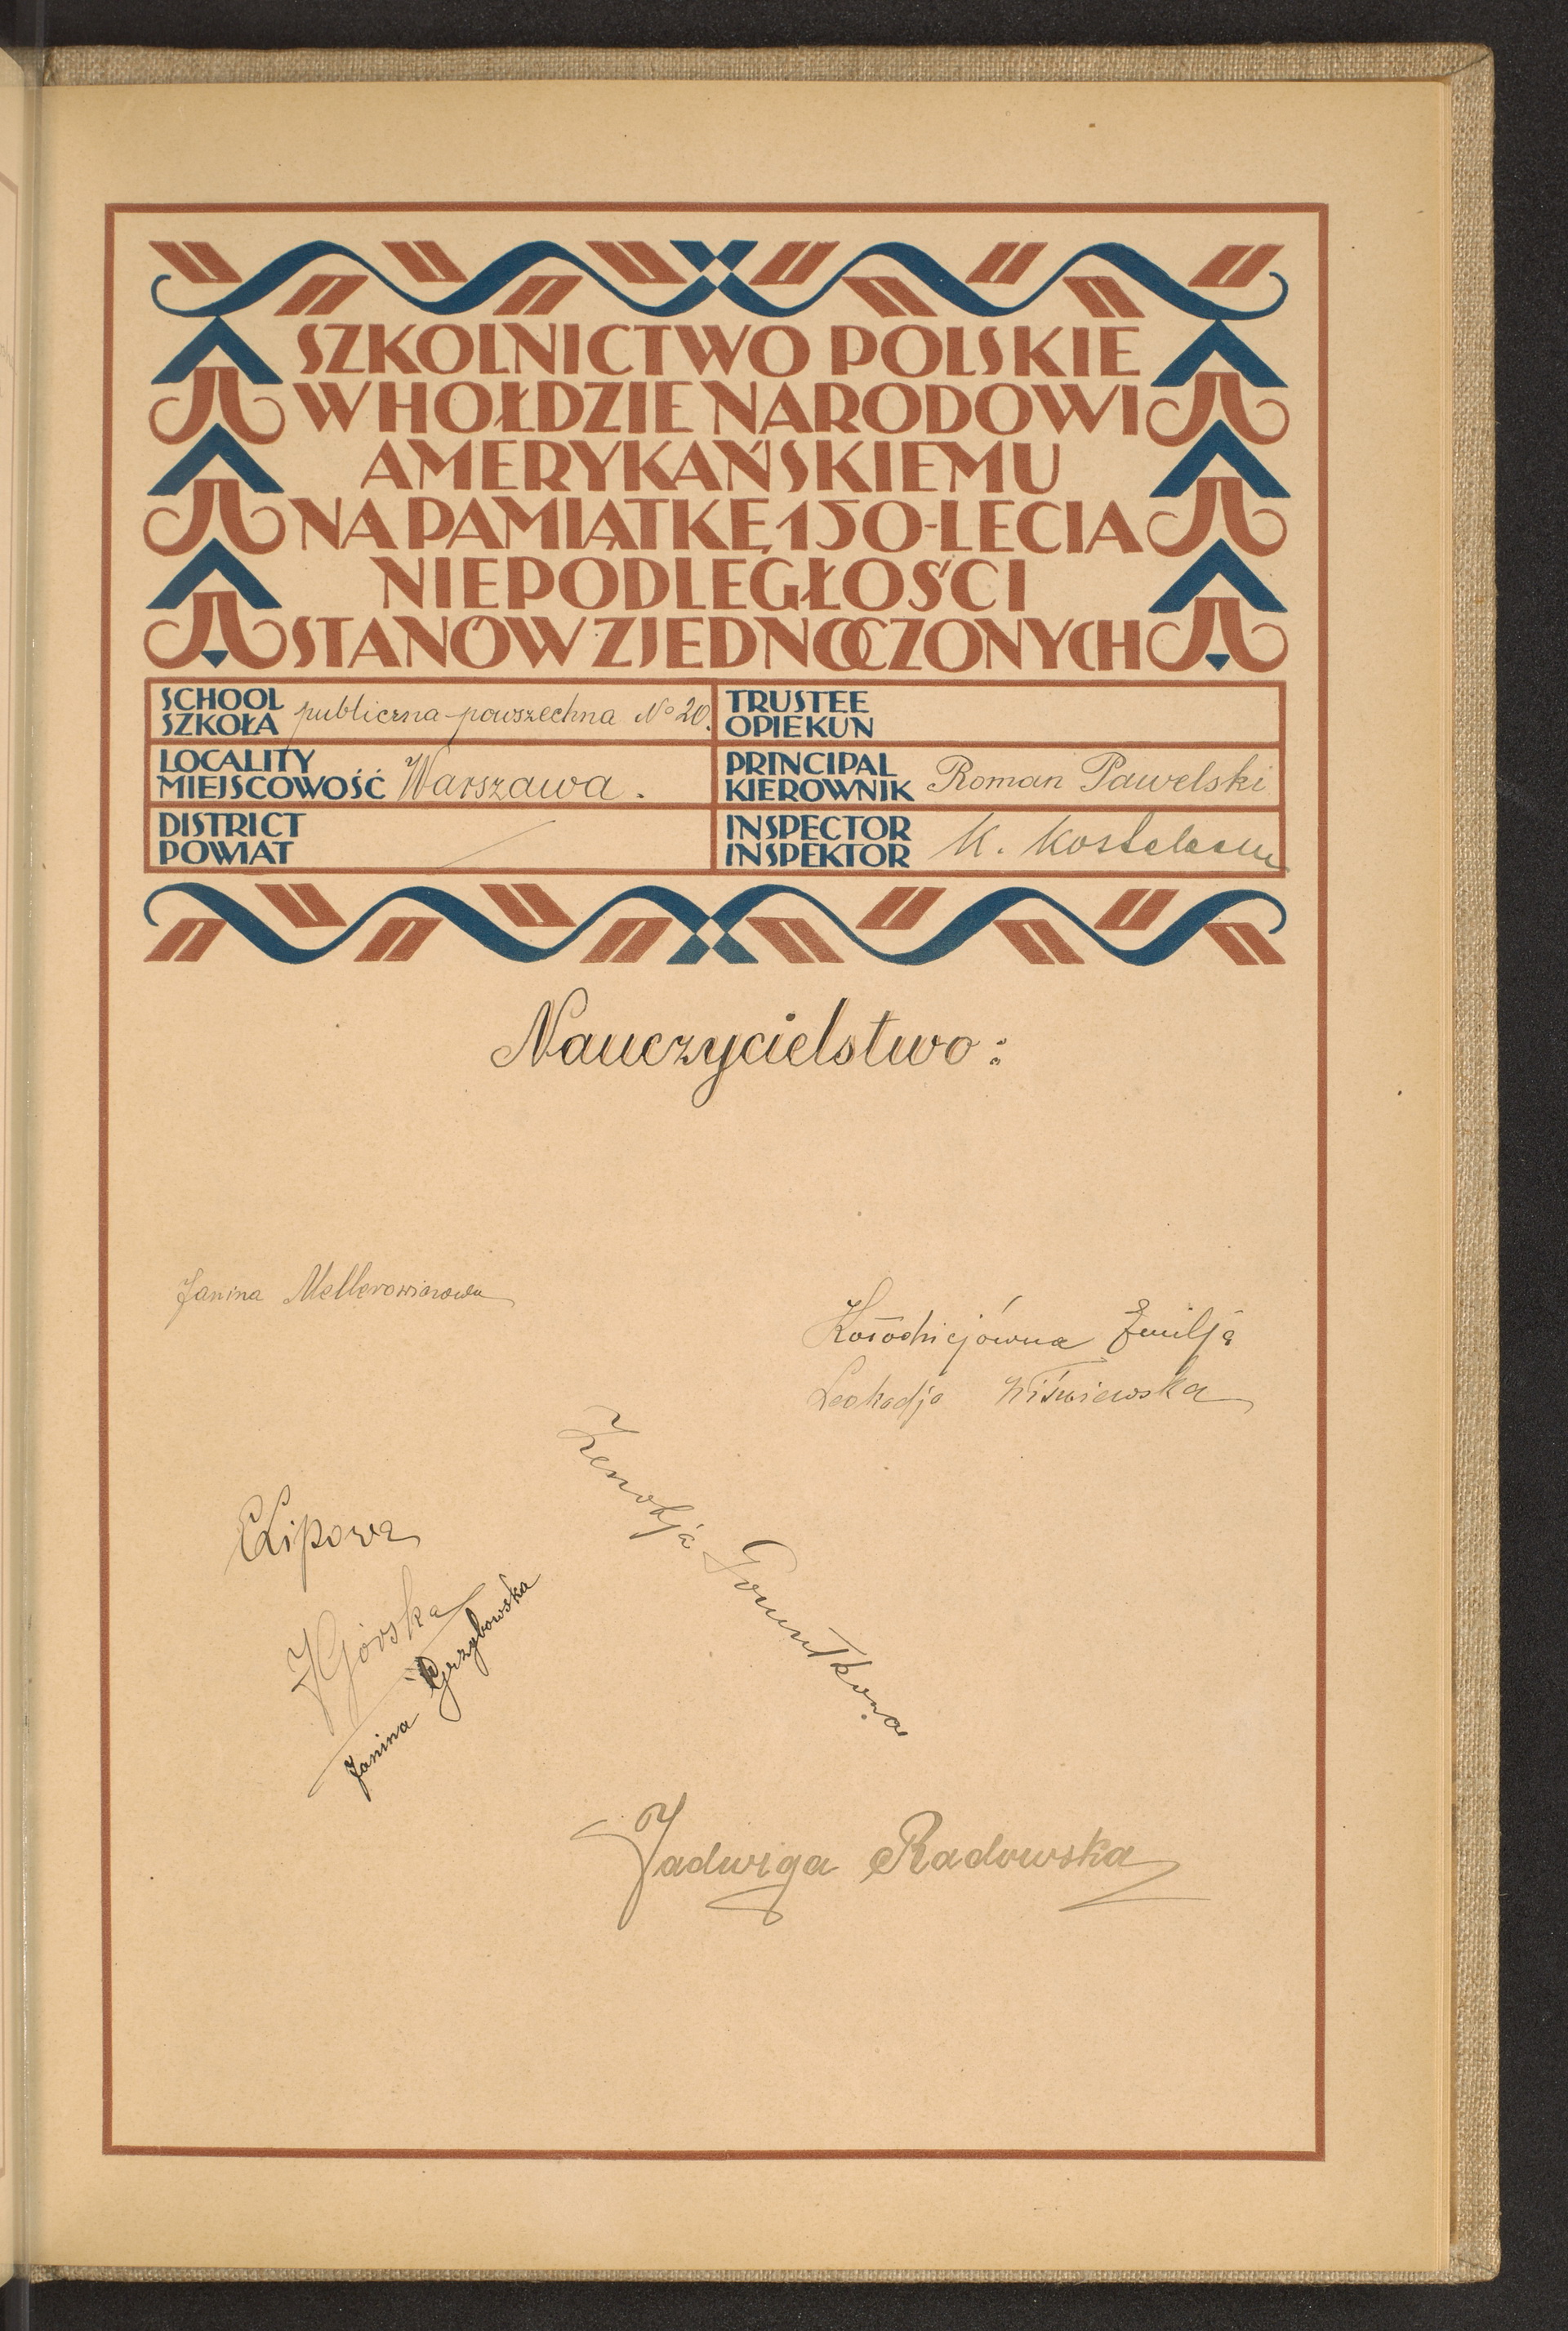 SZKOLNICTWO POLSKIE
W HOŁDZIE NARODOWI
AMERYKAŃSKIEMU
NA PAMIĄTKĘ 150-LECIA
NIEPODLEGŁOŚCI
STANÓW ZJEDNOCZONYCH
SCHOOL
SZKOŁA publiczna-powszechna № 20.
TRUSTEE
OPIEKUN
LOCALITY
MIEJSCOWOŚĆ Warszawa.
PRINCIPAL
KIEROWNIK Roman Pawelski
DISTRICT
POWIAT
INSPECTOR
INSPEKTOR K.
Nauczycielstwo:
Janina Mellerowiczowa
Kołodziejówna Emilja
Leokadja Wiśniewska
Zenobja Gomułkowa
Lipowa
JGórska
Janina Grzybowska
Jadwiga Radowska